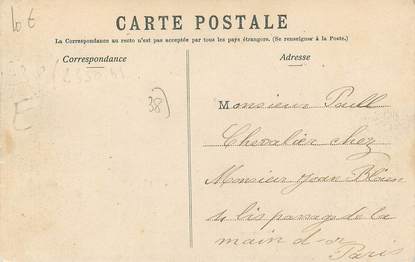 10 €
CARTE POSTALE
La Correspondance au recto n'est pas acceptée par tous les pays étrangers. (Se renseigner à la Poste.)
Correspondance
Adresse
E
38)
Monsieur Paull
Chevalier chez
Monsieur Jean
bis passage de la
main d'or
Paris